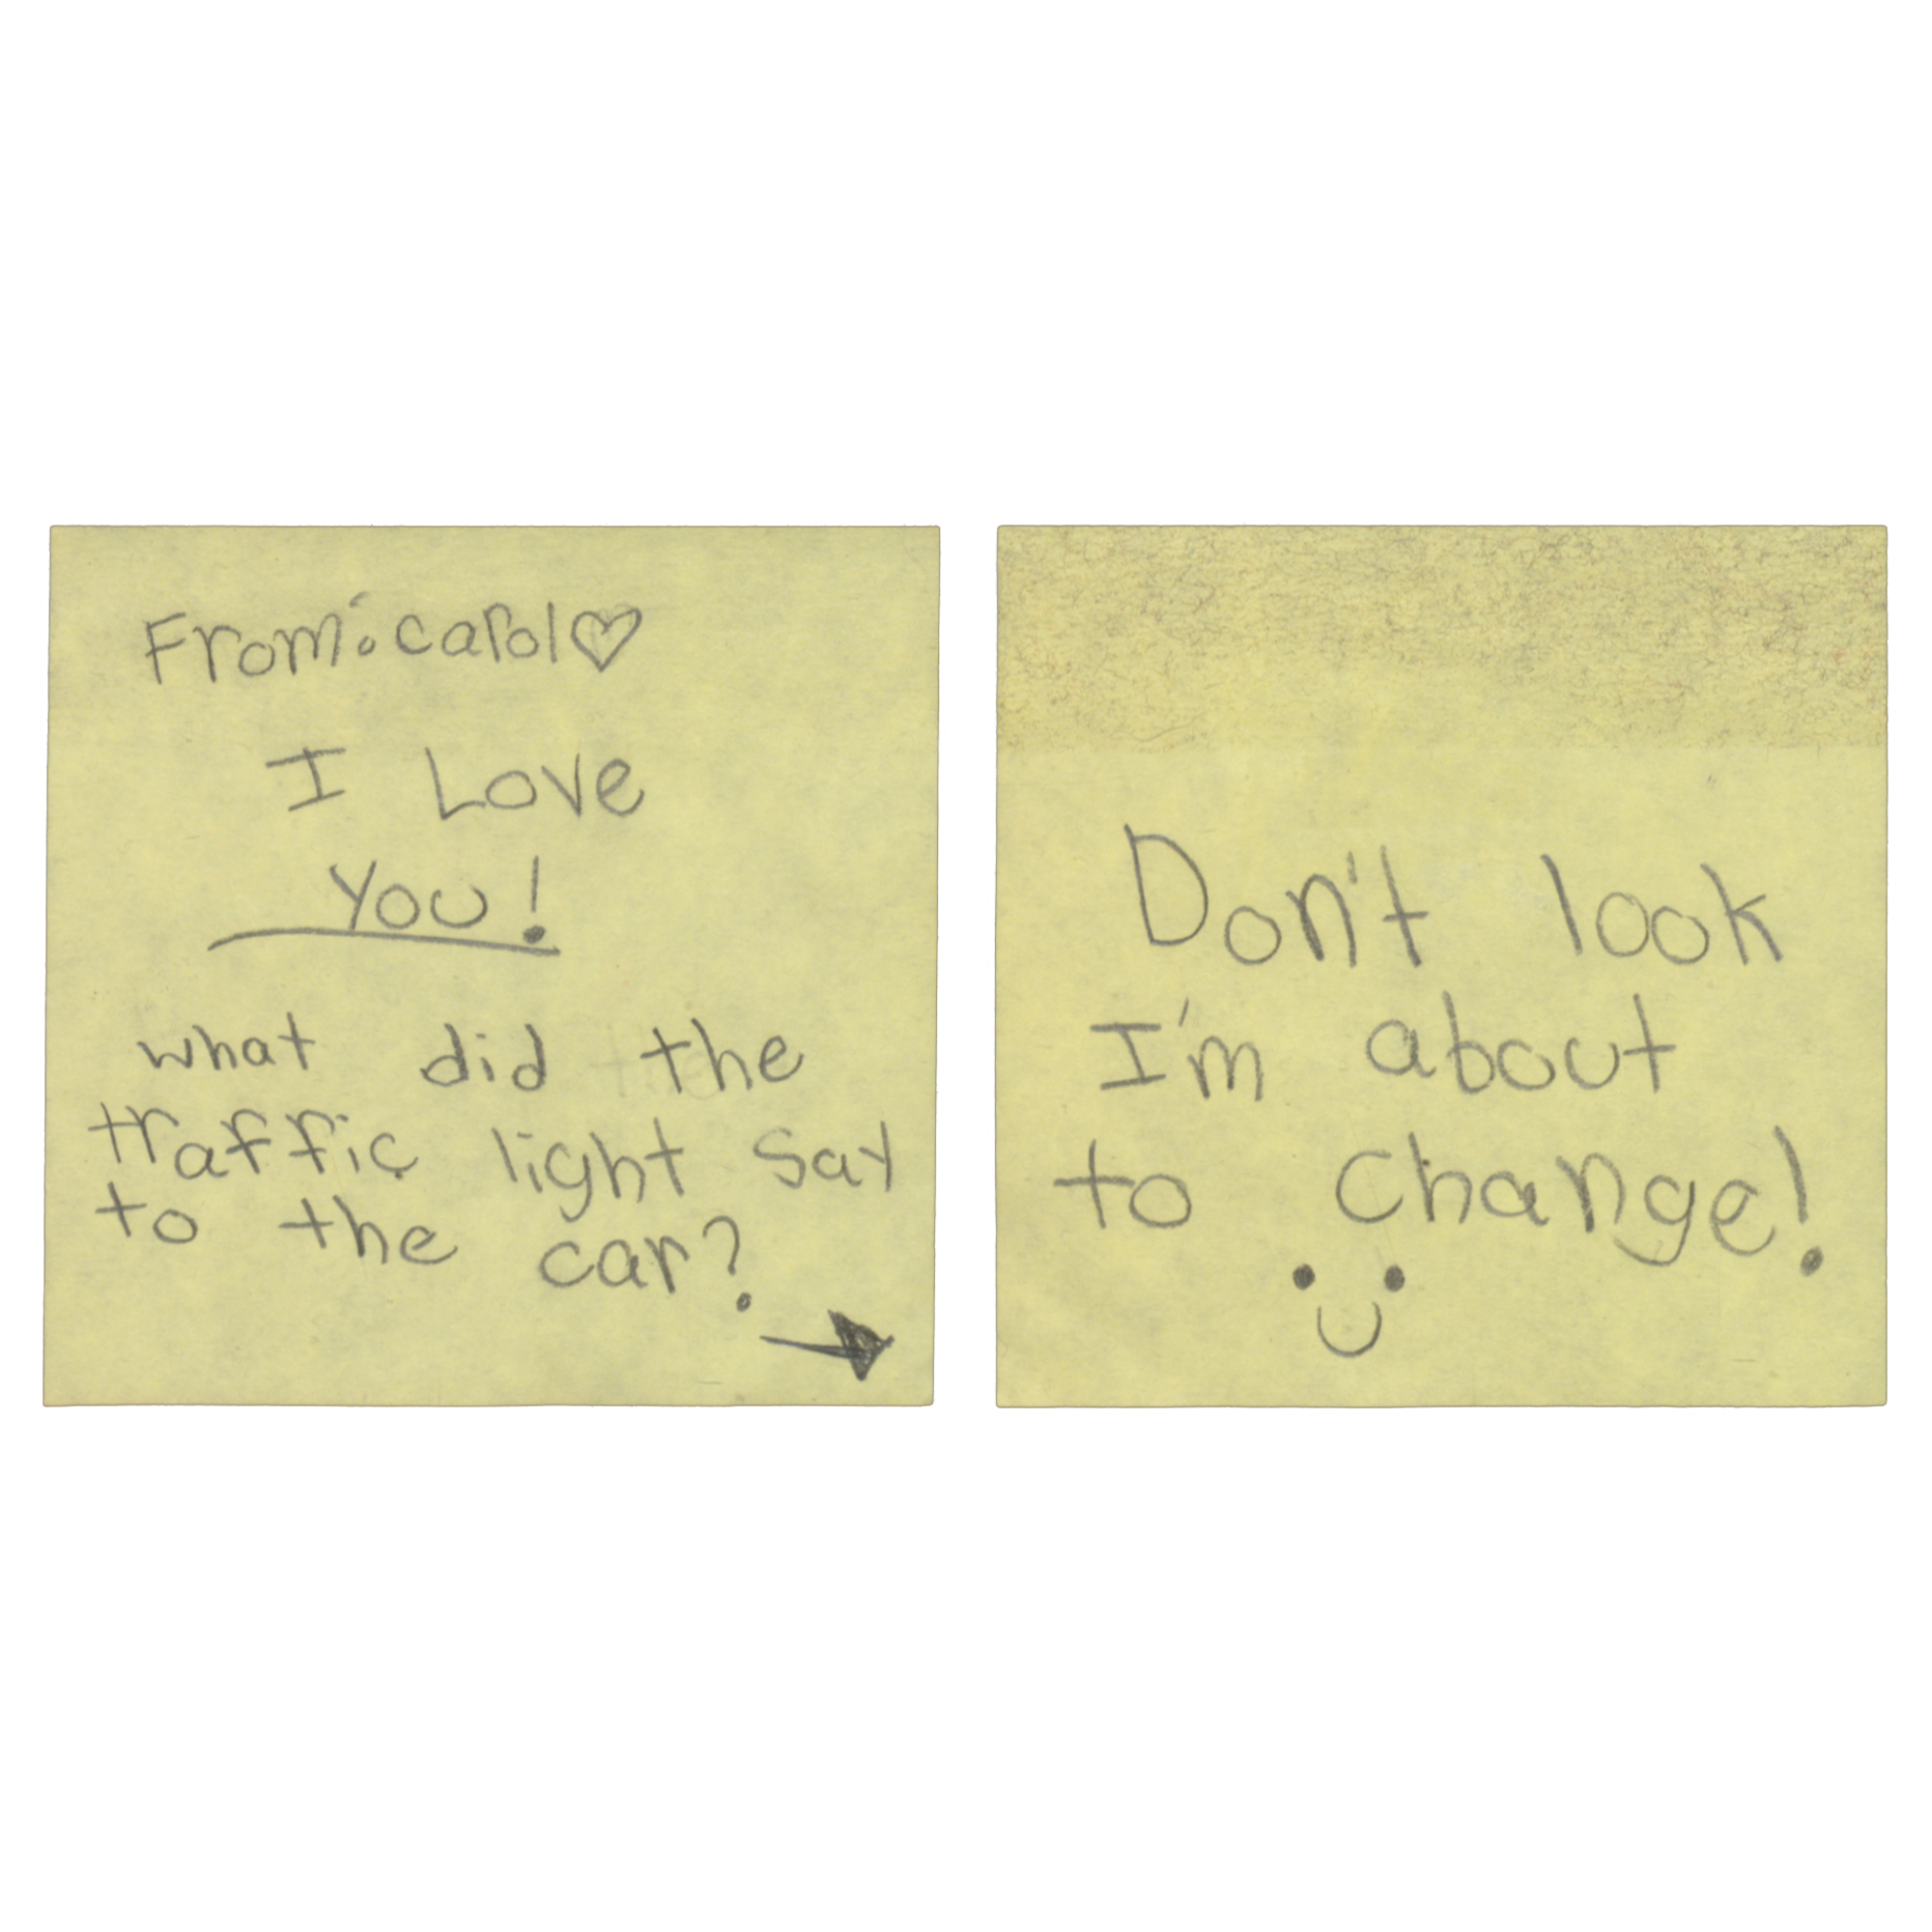 From: carol♡
I Love
You!
what did the
traffic light say
to the car?
Don't look
I'm about
to change!